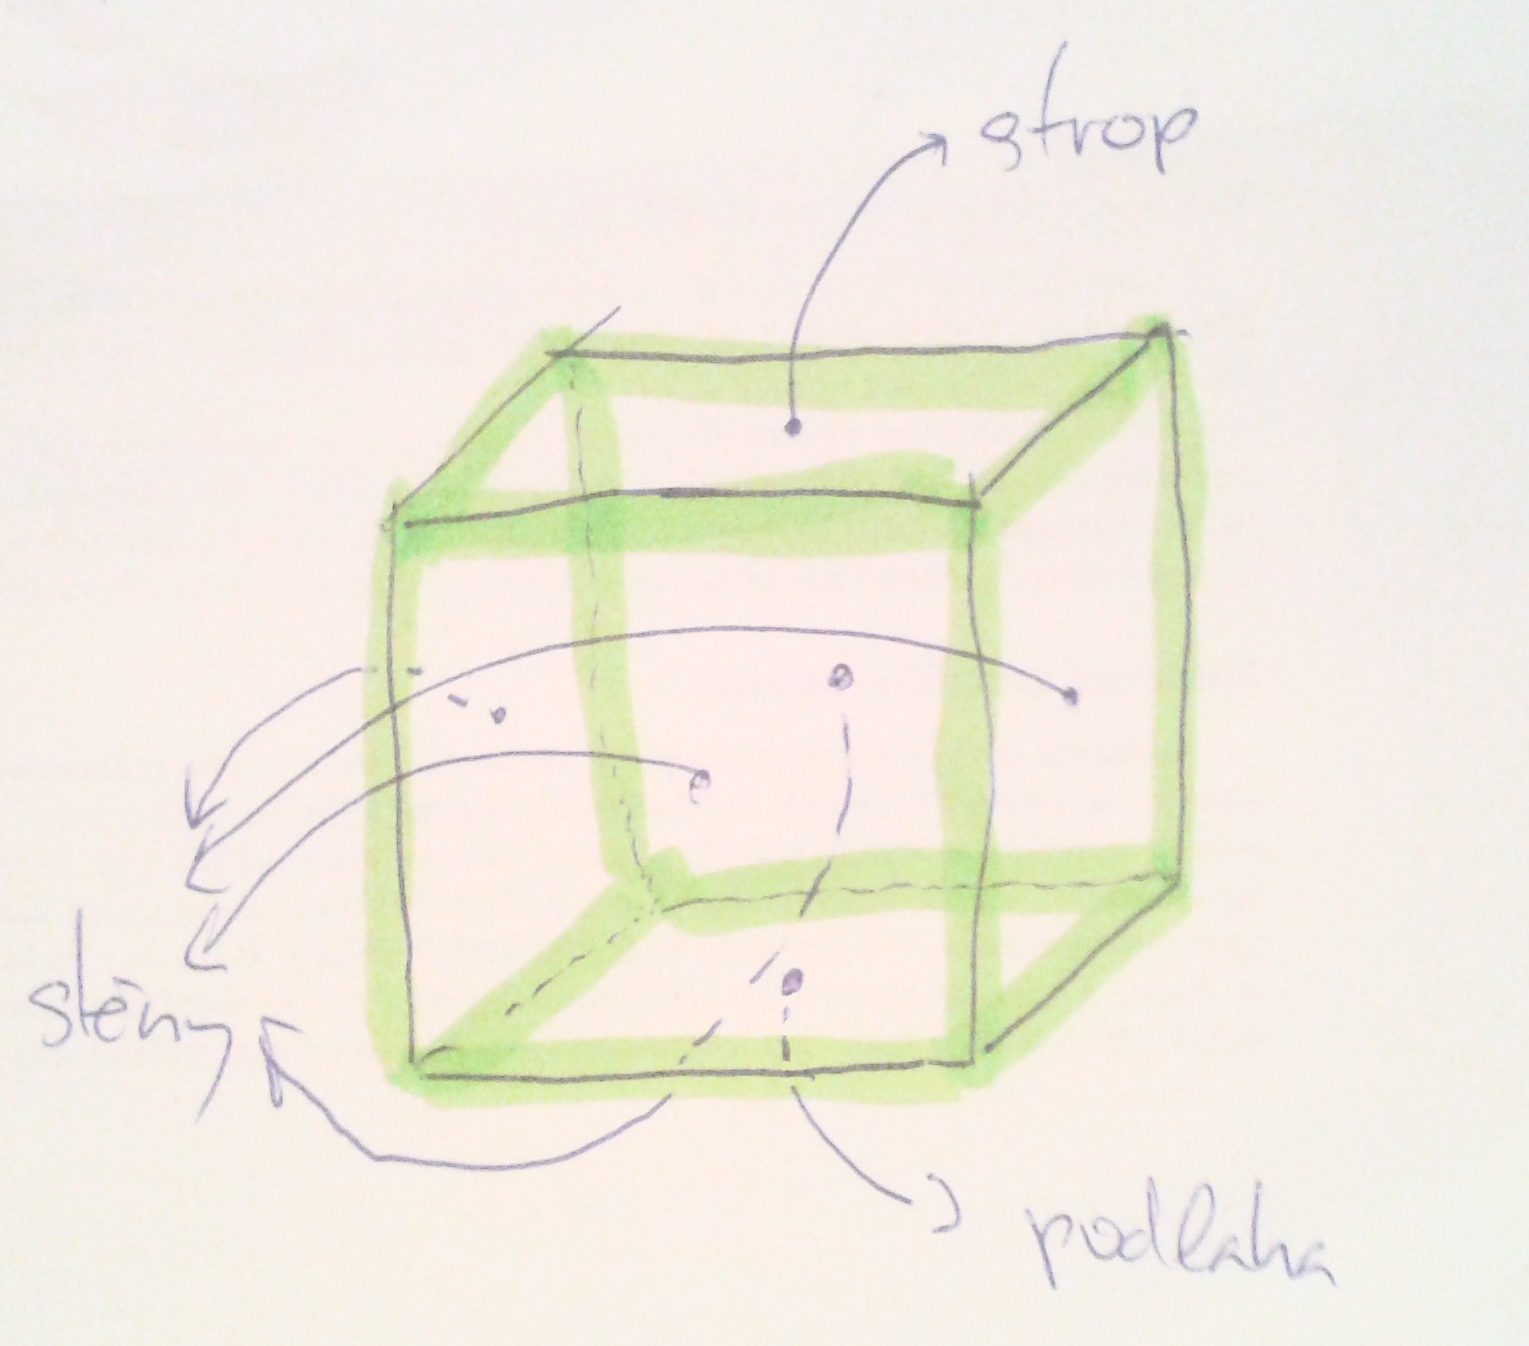 strop
stěny
podlaha